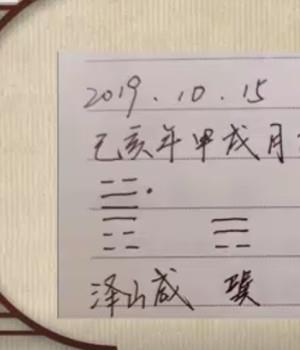 2019.10.15
己亥年甲戌月
泽山咸